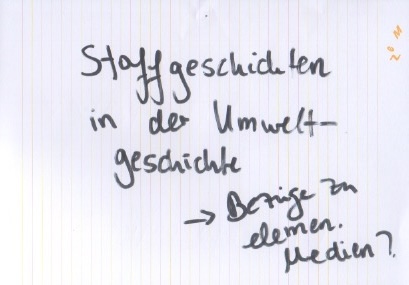 Stoffgeschichten
in der Umwelt-
geschichte
→ Bezüge zu
elemen.
Medien?